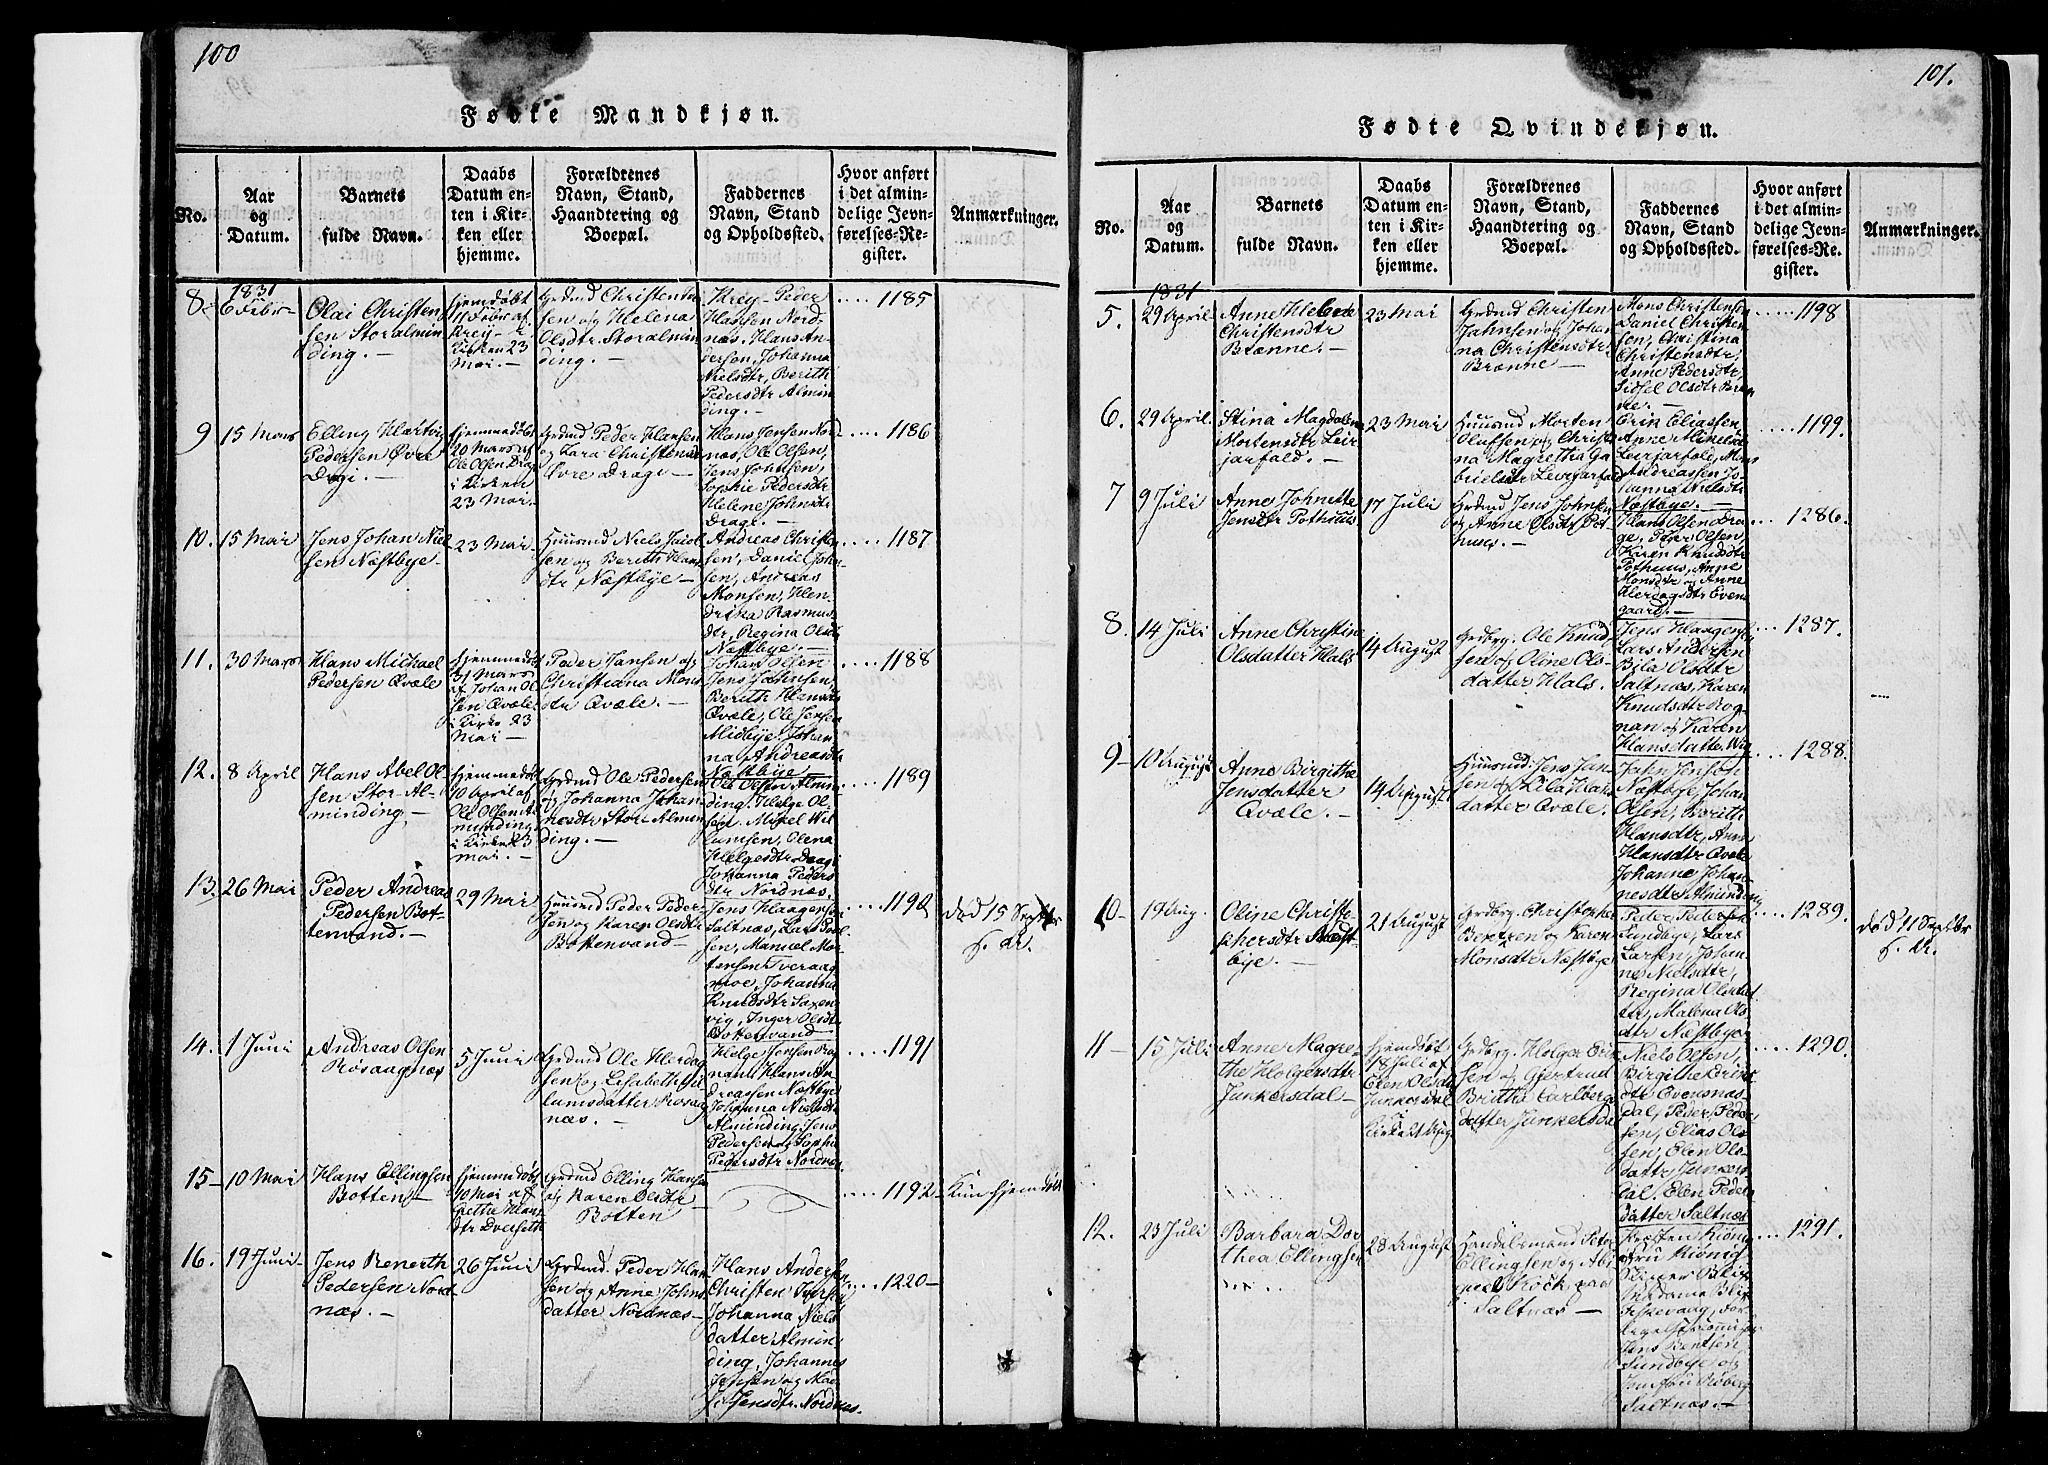 100
Fødte Mandkjøn.
No.
Aar
og
Datum.
Barnets
fulde Navn.
Daabs
Datum en-
ten i Kir-
ken eller
hjemme.
Forældrenes
Navn, Stand,
Haandtering og
Boepæl.
Faddernes
Navn, Stand
og Opholdssted.
Hvor anført
i det almin-
delige Jevn-
førelses-Re-
gister.
Anmærkninger.
8
1831
6 Febr
Olai Christen
sen Storalmin
ding.
hjemdøbt
Kirken 23
Mai.
Grdmd Christen
sen og Helena
Olsdtr Storalmin
ding.
Peder
Hansen Nord
næs, Hans An
dersen, Johanna
Nielsdtr, Berith
Pedersdtr Almin
ding.
1185
9
15 Mars
Elling Hartvig
Pedersen Øvre
Dragi.
hjemmedøbt
20 Mars af
Ole Olsen Drage
i Kirken
23 Mai.
Grdmd Peder Hansen
og Kara Christensd
Øvre Drage
Hans Jensen Nord
næs, Ole Olsen,
Jens Johnsen,
Sophie Pedersdtr
Helene Johnsdtr
Drage.
1186
10.
15 Mar
Jens Johan Niel
sen Næstbye
23 Mai
Huusmd Niels
sen og Berith Hans
dtr Næstbye
Andreas Christen
sen, Daniel John
sen, Andreas
Monsen, Hen
drika Rasmus
dtr, Regina Olsdtr
Næstbye.
1187
11.
30 Mars
Hans Michael
Pedersen Qvæle
hjemmedøbt
31 Mars
af Johan Ol
sen Qvæle
i Kirke 23
Mai
Peder Jansen og
Christiana Mons
dtr Qvæle.
Johan Olsen
Jens Johnsen,
Berith Hansdtr
Qvæle, Ole Jensen
Midbye, Johan
na Andreasdtr
Næstbye
1188
12.
8 April
Hans Abel Ol
sen Stor-Al
minding.
hjemmedøbt
10 April af
Ole Olsen Al
minding
i Kirken 23
Mai.
Grdmd Ole Pedersen
og Johanna Johan
nesdtr Stor-Almin
ding.
Ole Olsen Almin
ding, Helge Ol
sen, Mikel Wil
lumsen, Olena
Helgesdtr Dragi
Johanna Peders
dtr Nordnæs.
1189
13.
26 Mai
Peder Andreas
Pedersen Bot
tenvand.
29 Mai
Huusmd Peder Peder
sen og Karen Olsdtr
Bottenvand
Jens Haagensen
Saltnæs, Lars Povel
sen, Manuel Mor
tensen Tveraag
moe, Johanna
Knudsdtr Saxen
vig, Inger Olsdtr
Bottenvand
1190
død 15 Septbr
s. Ar.
14.
1 Juni
Andreas Olsen
Røsaagnæs
5 Juni
Grdmd Ole Herdag
sen og Lisabeth Vil
lumsdatter Røsaag
næs.
Helge Jensen Rog
nan, Hans An
dreassen Næstbye
Johanna Nielsdtr
Alminding, Jens
Pedersen og Sophia
Pedersdtr Nordnæs.
1191
15
10 Mai
Hans Ellingsen
Botten
hjemmedøbt
10 Mai af
Hans
dtr Evensgth
Grdmd Elling Hansen
og Karen Olsdtr
Botten
1192
Kun hjemdøbt
16.
19 Juni
Jens Benerth
Pedersen Nord
næs.
26 Juni
Grdmd. Peder Han
sen og Anne Johns
datter Nordnæs
Hans Andersen
Christen Iversen
Johanna Niels
datter Almin
ding, Johannes
Jensen og Ma
Jensdtr. Nordnæs.
1220
101.
Fødte Qvindekjøn.
No.
Aar
og
Datum.
Barnets
fulde Navn.
Daabs
Datum en-
ten i Kir-
ken eller
hjemme.
Forældrenes
Navn, Stand,
Haandtering og
Boepæl.
Faddernes
Navn, Stand
og Opholdssted.
Hvor anført
i det almin-
delige Jevn-
førelses-Re-
gister.
Anmærkninger.
5.
1831
29 April
Anne Helene
Christensdtr
Brænne.
23 Mai
Grdmd Christen
Jahnsen og Johan
na Christensdtr
Brænne
Mons Christensen
Daniel Christen
sen, Christina
Christensdtr,
Anne Pedersdtr,
Sidsel Olsdtr Bræn
ne.
1198
6.
29 April.
Stina Magdalene
Mortensdtr Leir
jarfald.
23 Mai
Huusmd Morten
Olufsen og Christi
na Magretha Ga
brielsdtr Leirjarfald
Erik Eliassen,
Anne Mikelsdtr
Leirjarfald, Mons
Andreassen, Jo
hanna Nielsdtr
Næstbye.
1199.
7
9 Juli
Anne Johnette
Jensdtr Pothuus
17 Juli
Grdmd Jens Johnsen
og Anne Olsdtr Pot
huus.
Hans Olsen Dra
ge, Iver Olsen,
Karen Knudsdtr
Pothuus, Anne
Monsdtr og Anne
Herdagsdtr Evens
gaard.
1286.
8.
14 Juli
Anne Christin
Olsdatter Hals
14 August
Grdbrg. Ole Knud
sen og Oline Ols-
datter Hals.
Jens Haagensen
Lars Andersen
Bila Olsdtr
Saltnæs, Karen
Knudsdtr Rog
nan og Karen
Hansdatter Wig
1287.
9
10 August
Anne Birgithe
Jensdatter
Qvæle.
14 August
Huusmd. Jens Jan
sen og Lila Hans
datter Qvæle.
John Jensen
Næstbye, Johan
Olsen, Berith
Hansdtr, Anne
Hansdtr Qvæle
Johanne Johan
nesdtr Alminding
1288.
10
19 Aug.
Oline Christo
phersdtr Næst
bye.
21 August
Grdbrg. Christopher
Bentzen og Karen
Monsdtr Næstbye
Peder Pedersen
Sundbye, Lars
Larsen, Johan
ne Nielsdtr,
Regina Olsdat
ter, Malena Ols
dtr Næstbye
1289.
død 11 Septbr
s. Ar.
11
15 Juli
Anne Magre
the Holgersdtr
Junkersdal
hjemdøbt
18 Juli af
Elen Olsdtr
Junkersdal
i
Kirke 28 Aug
Grdbrg. Holger Erik
sen og Gjertrud
Brithe Carlberg
datter Junkersdal
Niels Olsen,
Birgithe Eriks
dtr Evensnæs
dal, Peder Peder
sen, Elias Ol
sen, Elen Ols
datter Junkers
dal, Elen Peders
datter Saltnæs
1290.
12.
23 Juli
Barbara Dor
thea Ellingsen
28 August
Handelsmand Peter
Ellingsen og Abi
gael Kock paa
Saltnæs
Fru König
Madame Blix
Fiskevaag, For
Jens Bentsen
Sundbye og
Jomfru Röberg
Saltnæs.
1291.